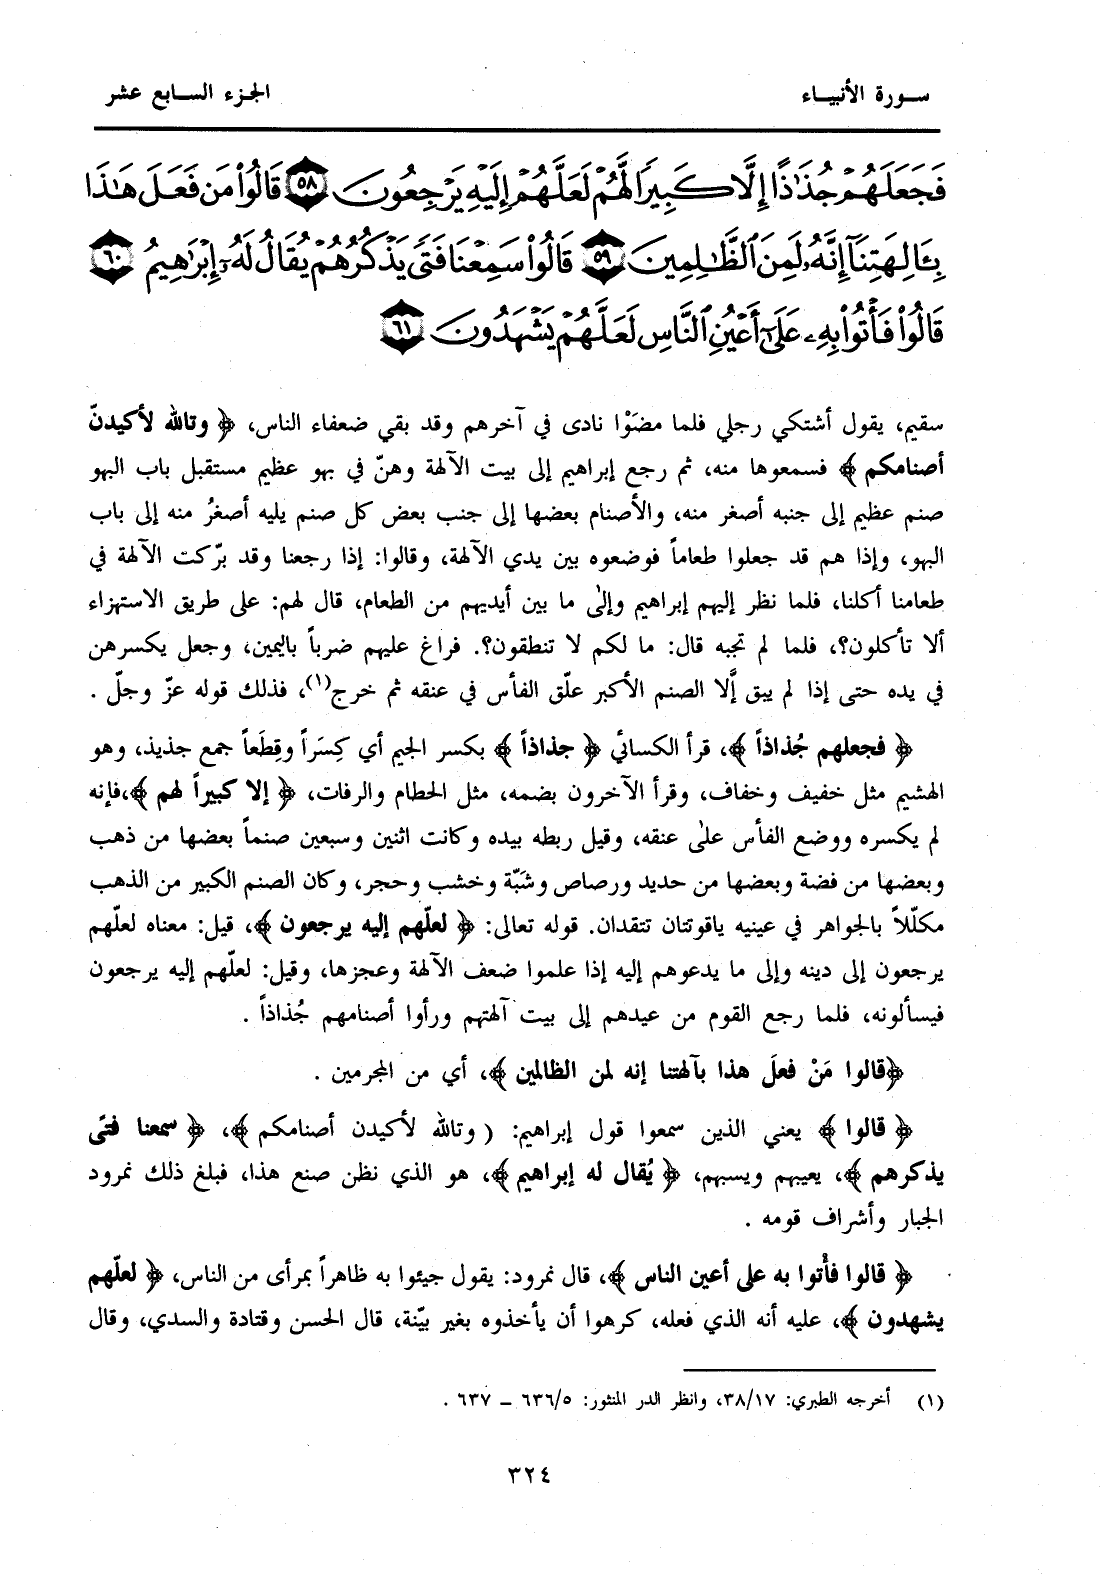 سورة الأنبياء
الجزء السابع عشر
فَجَعَلَهُمْ جُذَٰذًا إِلَّا كَبِيرًا لَّهُمْ لَعَلَّهُمْ إِلَيْهِ يَرْجِعُونَ ٥٨ قَالُوا۟ مَن فَعَلَ هَٰذَا
بِـَٔالِهَتِنَآ إِنَّهُۥ لَمِنَ ٱلظَّٰلِمِينَ ٥٩ قَالُوا۟ سَمِعْنَا فَتًى يَذْكُرُهُمْ يُقَالُ لَهُۥٓ إِبْرَٰهِيمُ ٦٠
قَالُوا۟ فَأْتُوا۟ بِهِۦ عَلَىٰٓ أَعْيُنِ ٱلنَّاسِ لَعَلَّهُمْ يَشْهَدُونَ ٦١
سقيم، يقول أشتكي رجلي فلما مضَوْا نادى في آخرهم وقد بقي ضعفاء الناس، ﴿ وتالله لأكيدنّ
أصنامكم ﴾ فسمعوها منه، ثم رجع إبراهيم إلى بيت الآلهة وهنّ في بهو عظيم مستقبل باب البهو
صنم عظيم إلى جنبه أصغر منه، والأصنام بعضها إلى جنب بعض كل صنم يليه أصغرُ منه إلى باب
البهو، وإذا هم قد جعلوا طعاماً فوضعوه بين يدي الآلهة، وقالوا: إذا رجعنا وقد برّكت الآلهة في
طعامنا أكلنا، فلما نظر إليهم إبراهيم وإلىٰ ما بين أيديهم من الطعام، قال لهم: على طريق الاستهزاء
ألا تأكلون؟، فلما لم تجبه قال: ما لكم لا تنطقون؟. فراغ عليهم ضرباً باليمين، وجعل يكسرهن
في يده حتى إذا لم يبق إّلا الصنم الأكبر علّق الفأس في عنقه ثم خرج(١)، فذلك قوله عزّ وجلّ .
﴿ فجعلهم جُذاذاً ﴾، قرأ الكسائي ﴿ جذاذاً ﴾ بكسر الجيم أي كِسَراً وقِطَعاً جمع جذيذ، وهو
الهشيم مثل خفيف وخفاف، وقرأ الآخرون بضمه، مثل الحطام والرفات، ﴿ إلا كبيراً لهم ﴾،فإنه
لم يكسره ووضع الفأس علىٰ عنقه، وقيل ربطه بيده وكانت اثنين وسبعين صنماً بعضها من ذهب
وبعضها من فضة وبعضها من حديد ورصاص وشَبّة وخشب وحجر، وكان الصنم الكبير من الذهب
مكلّلاً بالجواهر في عينيه ياقوتتان تتقدان. قوله تعالى: ﴿ لعلّهم إليه يرجعون ﴾، قيل: معناه لعلّهم
يرجعون إلى دينه وإلى ما يدعوهم إليه إذا علموا ضعف الآلهة وعجزها، وقيل: لعلّهم إليه يرجعون
فيسألونه، فلما رجع القوم من عيدهم إلى بيت آلهتهم ورأوا أصنامهم جُذاذاً .
﴿قالوا مَنْ فعلَ هذا بآلهتنا إنه لمن الظالمين ﴾، أي من المجرمين .
﴿ قالوا ﴾ يعني الذين سمعوا قول إبراهيم: ( وتالله لأكيدن أصنامكم ﴾، ﴿ سمعنا فتًى
يذكرهم ﴾، يعيبهم ويسبهم، ﴿ يُقال له إبراهيم ﴾، هو الذي نظن صنع هذا، فبلغ ذلك نمرود
الجبار وأشراف قومه .
﴿ قالوا فأْتوا به على أعين الناس ﴾، قال نمرود: يقول جيئوا به ظاهراً بمرأى من الناس، ﴿ لعلّهم
يشهدون ﴾، عليه أنه الذي فعله، كرهوا أن يأخذوه بغير بيّنة، قال الحسن وقتادة والسدي، وقال
(١) أخرجه الطبري: ٣٨/١٧، وانظر الدر المنثور: ٦٣٦/٥ ــ ٦٣٧ .
٣٢٤